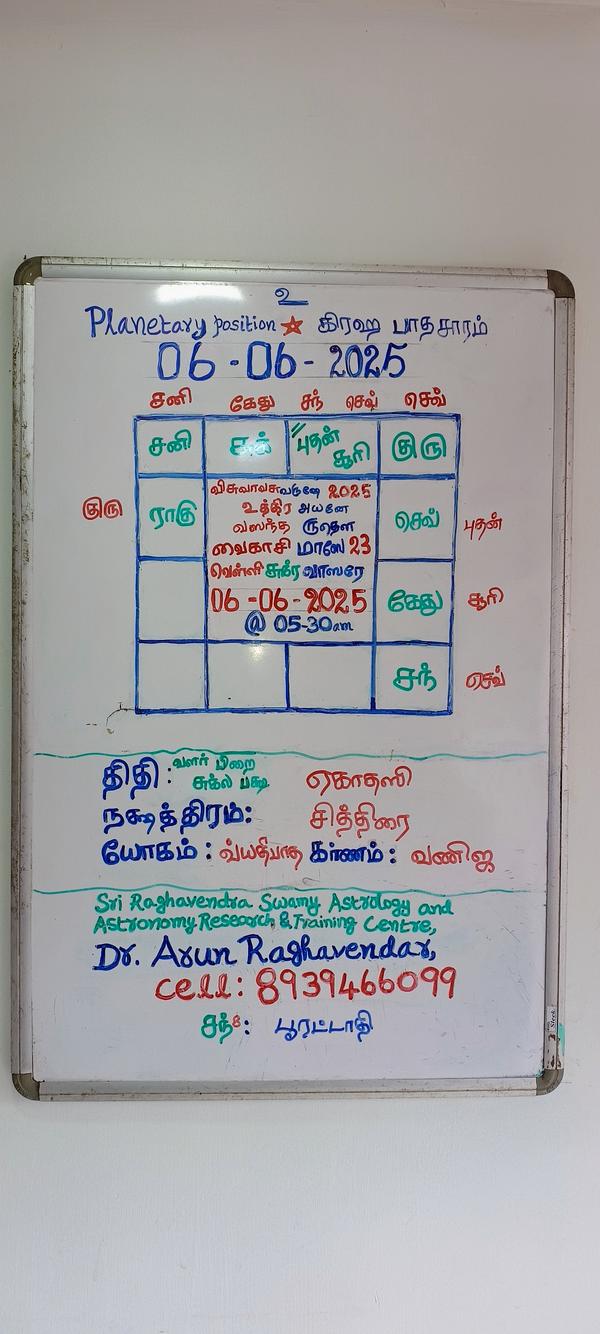 உ
Planetary position ☆ கிரஹ பாதசாரம்
06-06-2025
சனி கேது சந் செவ் செவ்
சனி சுக் "புதன் சூரி குரு
குரு ராகு செவ் புதன்
விசுவாவசுவருஷே 2025
உத்திர அயனே
வஸந்த ருதௌ
வைகாசி மாஸே 23
வெள்ளி சுக்ர வாஸரே
06-06-2025
@ 05-30am
கேது சூரி
சந் செவ்
திதி: வளர் பிறை
சுக்ல பக்ஷ ஏகாதஸி
நக்ஷத்திரம்: சித்திரை
யோகம்: வ்யதீபாத கரணம்: வணிஜ
Sri Raghavendra Swamy Astrology and
Astronomy Research & Training Centre,
Dr. Arun Raghavendar,
cell: 8939466099
சந்8: பூரட்டாதி